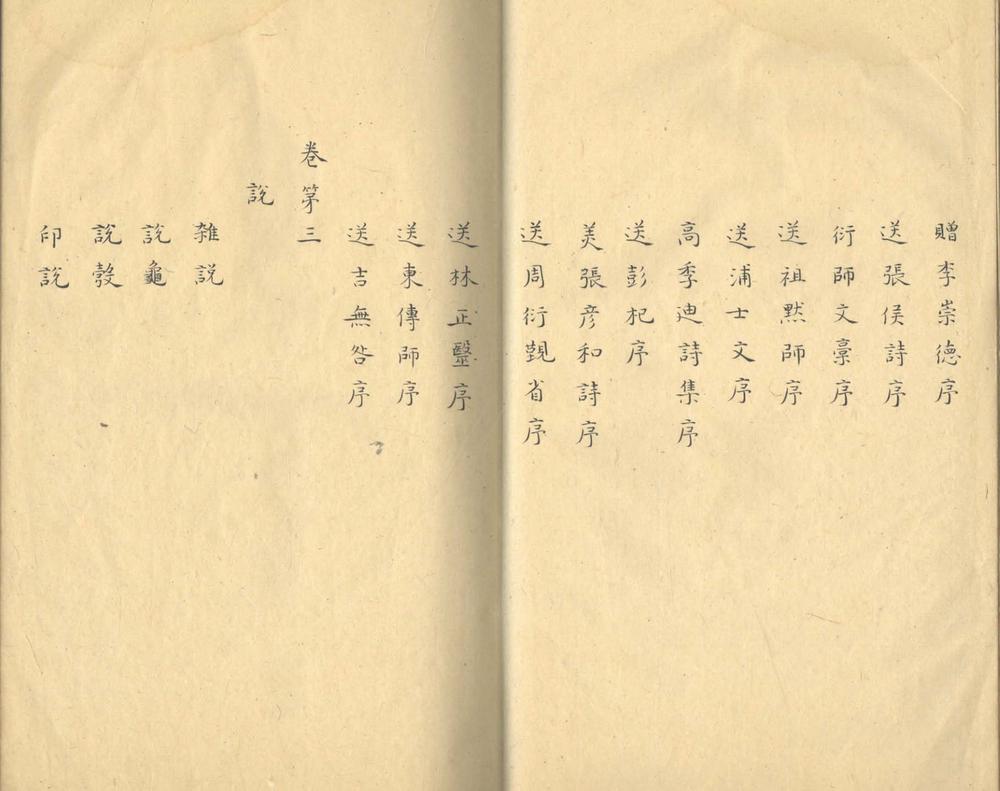 贈李崇德序
送張侯詩序
衍師文稾序
送祖默師序
送浦士文序
高季迪詩集序
送彭杞序
美張彦和詩序
送周衍覲省序
送林正毉序
送東傳師序
送吉無咎序
卷第三
說
雜說
說龜
說㝅
印說